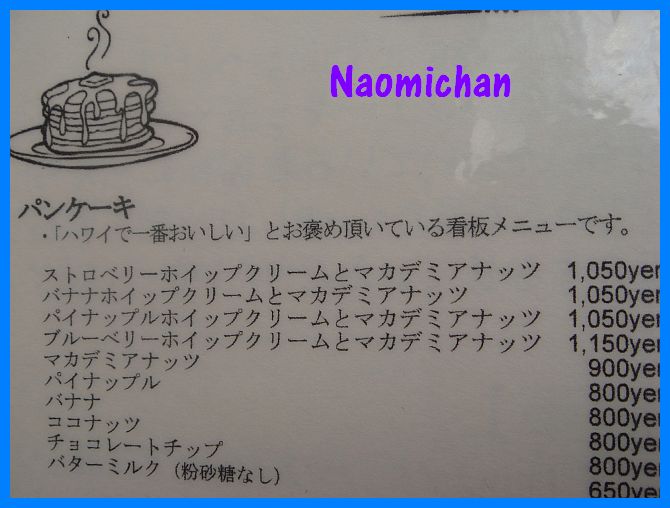 Naomichan
パンケーキ
・「ハワイで一番おいしい」とお褒め頂いている看板メニューです。
ストロベリーホイップクリームとマカデミアナッツ 1,050yen
バナナホイップクリームとマカデミアナッツ 1,050yen
パイナップルホイップクリームとマカデミアナッツ 1,050yen
ブルーベリーホイップクリームとマカデミアナッツ 1,150yen
マカデミアナッツ 900yen
パイナップル 800yen
バナナ 800yen
ココナッツ 800yen
チョコレートチップ 800yen
バターミルク（粉砂糖なし） 650yen